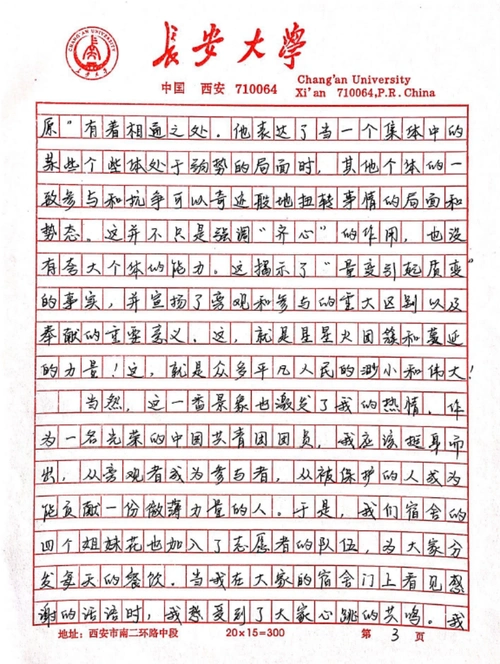 CHANG'AN UNIVERSITY
长安大学
长安大学
中国 西安 710064
Chang'an University
Xi'an 710064,P.R.China
原”有着相通之处。他表达了当一个集体中的
某些个些体处于弱势的局面时，其他个体的一
致参与和抗争可以奇迹般地扭转事情的局面和
势态。这并不只是强调“齐心”的作用，也没
有夸大个体的能力。这揭示了“量变引起质变”
的事实，并宣扬了旁观和参与的重大区别以及
奉献的重要意义。这，就是星星火团簇和蔓延
的力量！这，就是众多平凡人民的渺小和伟大！
当然，这一番景象也激发了我的热情。作
为一名光荣的中国共青团团员，我应该挺身而
出，从旁观者成为参与者，从被保护的人成为
能贡献一份微薄力量的人。于是，我们宿舍的
四个姐妹花也加入了志愿者的队伍，为大家分
发每天的餐饮。当我在大家的宿舍门上看见感
谢的话语时，我感受到了大家心跳的共鸣。我
地址：西安市南二环路中段 20×15=300 第 3 页